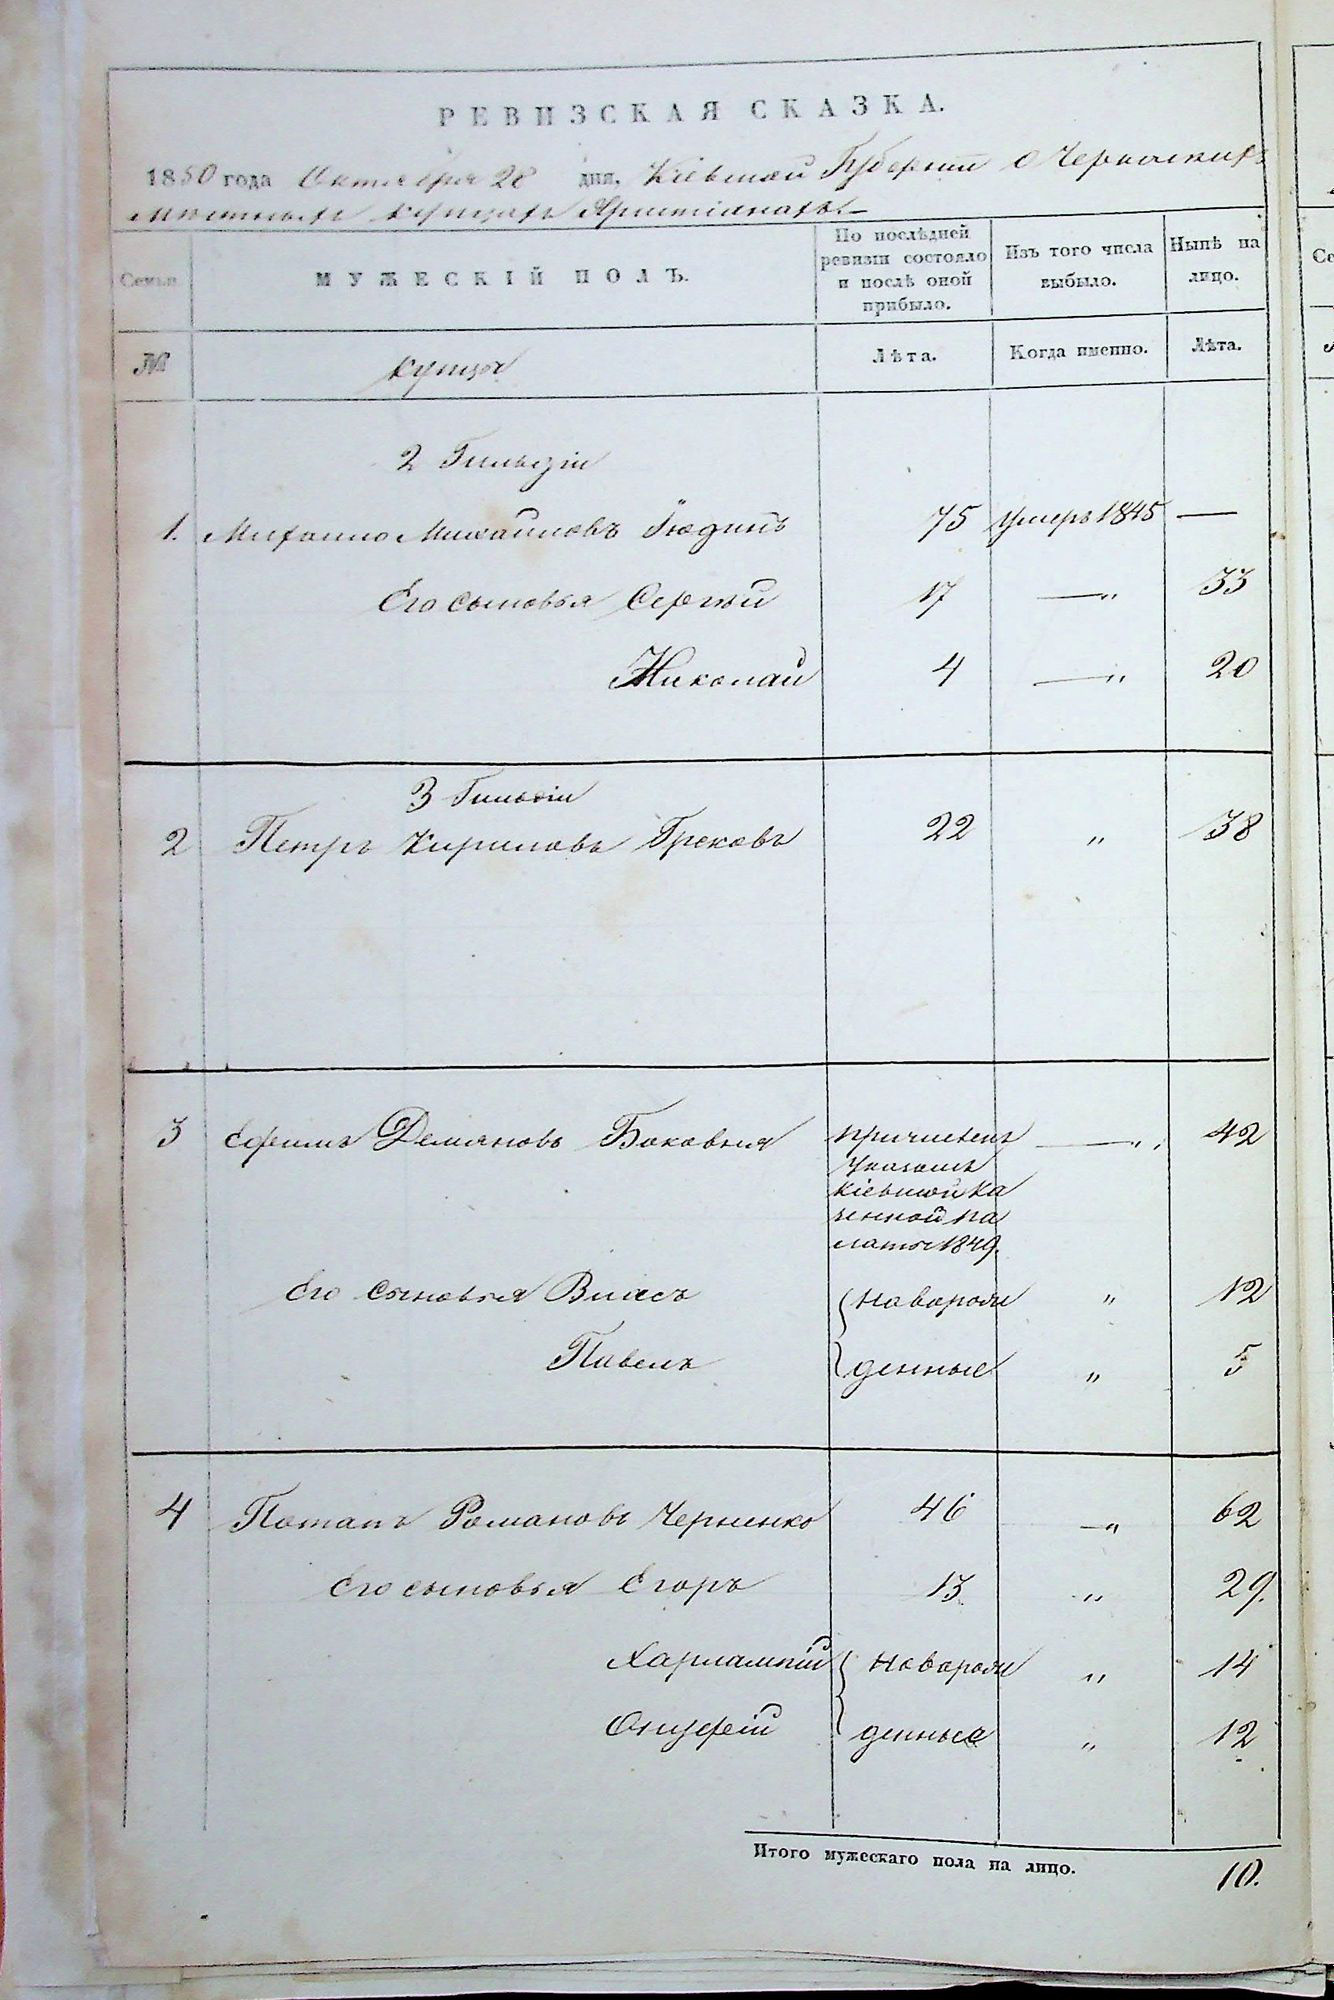 РЕВИЗСКАЯ СКАЗКА.
1850 года Октября 28 дня, Кіевской Губерніи о Черкаскихъ
мѣстныхъ купцахъ Христіянахъ.
Семьи.
МУЖЕСКІЙ ПОЛЪ.
По послѣдней
ревизіи состояло
и послѣ оной
прибыло.
Изъ того числа
выбыло.
Нынѣ на
лицо.
№
купцы
Лѣта.
Когда именно.
Лѣта.
2 Гильдіи
1. Михаило Михайловъ Юдинъ 75 умеръ 1845 —
Его сыновья Сергѣй 17 — „ 33
Николай 4 — „ 20
3 Гильдіи
2 Петръ Кириловъ Грековъ 22 „ 38
3 Ефимъ Демяновъ Баковня причисленъ — „ 42
Указомъ
Кіевской Ка
зенной па
латы 1849.
Его сыновья Власъ { новорож „ 12
Павелъ { денные „ 5
4 Потапъ Романовъ Черненко 46 — „ 62
Его сыновья Егоръ 13 „ 29.
Харлампій { новорож „ 14
Онуфрій { денные „ 12
Итого мужескаго пола на лицо. 10.